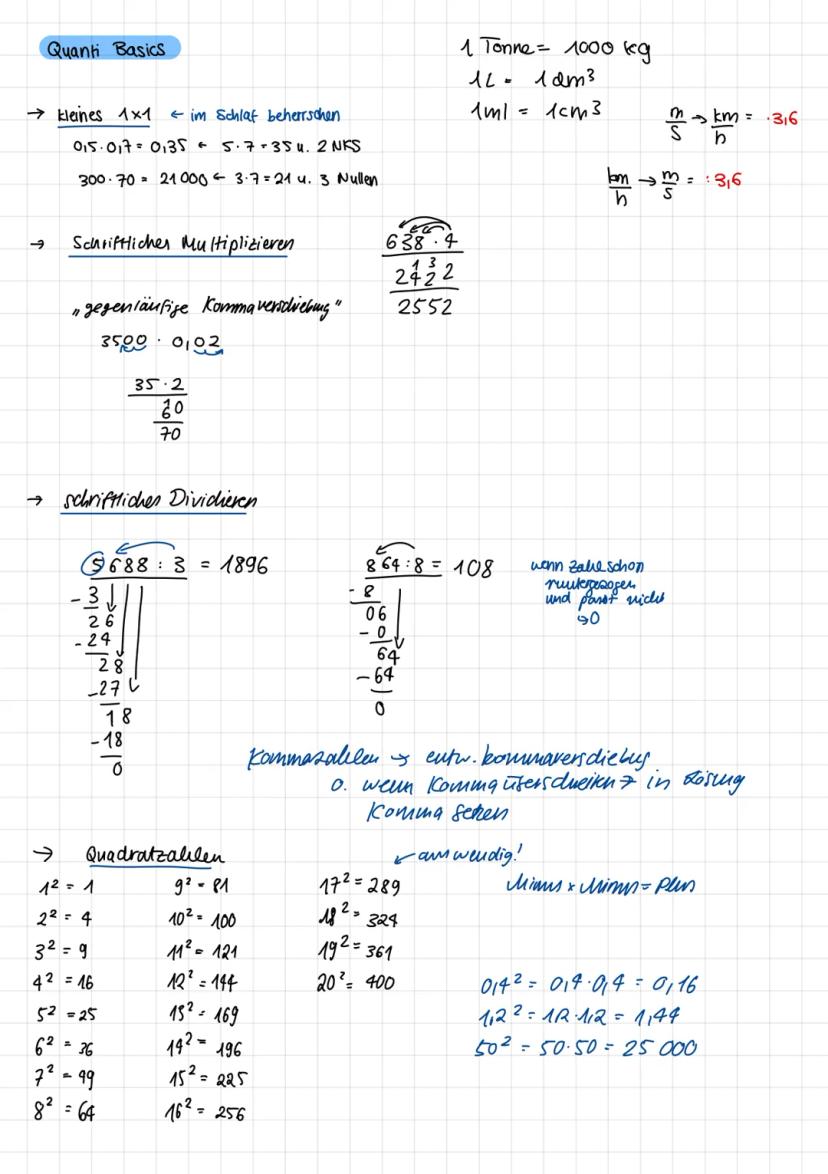 Quanti Basics
1 Tonne = 1000 kg
1L = 1dm³
1ml = 1cm³
m/s → km/h = ·3,6
km/h → m/s = :3,6
→ kleines 1x1 ← im Schlaf beherrschen
0,5·0,7 = 0,35 ← 5·7=35 u. 2 NKS
300·70 = 21000 ← 3·7=21 u. 3 Nullen
→ Schriftliches Multiplizieren
638·4
2422
1 3
2552
„gegenläufige Kommaverschiebung"
3500 · 0,02
35·2
60
1
70
→ schriftliches Dividieren
5688 : 3 = 1896
-3
26
-24
28
-27
18
-18
0
864:8 = 108
-8
06
-0
64
-64
0
wenn Zahl schon
runtergezogen
und passt nicht
↳0
Kommazahlen → entw. kommaverschiebug
o. wenn Komma überschreiten → in Lösung
Komma setzen
→ Quadratzahlen
← auswendig!
1² = 1
2² = 4
3² = 9
4² = 16
5² = 25
6² = 36
7² = 49
8² = 64
9² = 81
10² = 100
11² = 121
12² = 144
13² = 169
14² = 196
15² = 225
16² = 256
17² = 289
18² = 324
19² = 361
20² = 400
Minus x Minus = Plus
0,4² = 0,4·0,4 = 0,16
1,2² = 1,2·1,2 = 1,44
50² = 50·50 = 25 000